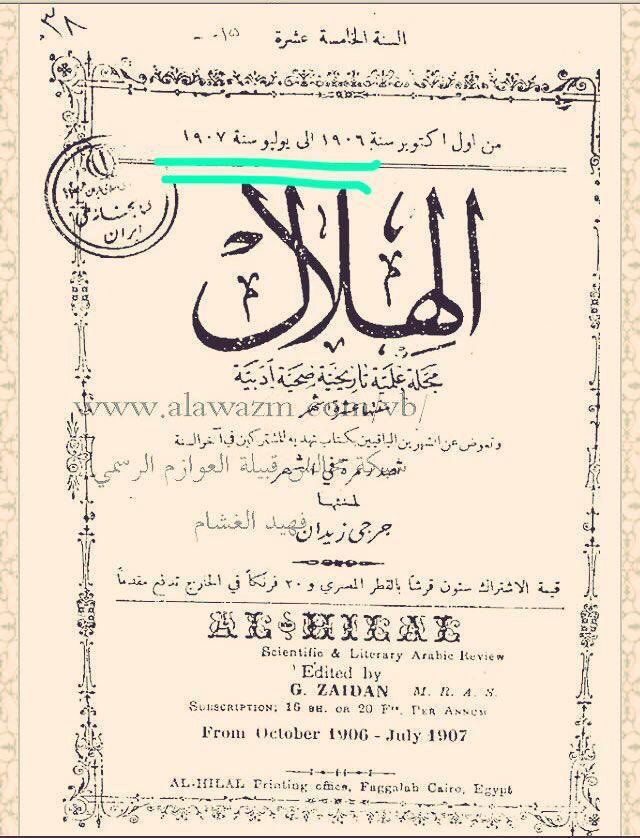 ٣٨
السنة الخامسة عشرة -١٥-
من اول اكتوبر سنة ١٩٠٦ الى يوليو سنة ١٩٠٧
كتابخانه
ايران
الهلال
مجلة علمية تاريخية صحية ادبية
www.alawazm.com/vb/
وتعوض عن الشهرين الباقيين بكتاب تهديه للمشتركين في آخر السنة
تصدر مرة في الشهر
شبكة مجالس قبيلة العوازم الرسمي
لمنشئها
جرجي زيدان
فهيد الغشام
قيمة الاشتراك ستون قرشاً بالقطر المصري و ٢٠ فرنكاً في الخارج تدفع مقدماً
AL-HILAL
Scientific & Literary Arabic Review
Edited by
G. ZAIDAN M. R. A. S.
SUBSCRIPTION: 16 SH. OR 20 Fr. PER ANNUM
From October 1906 - July 1907
AL-HILAL Printing office, Faggalah Cairo, Egypt